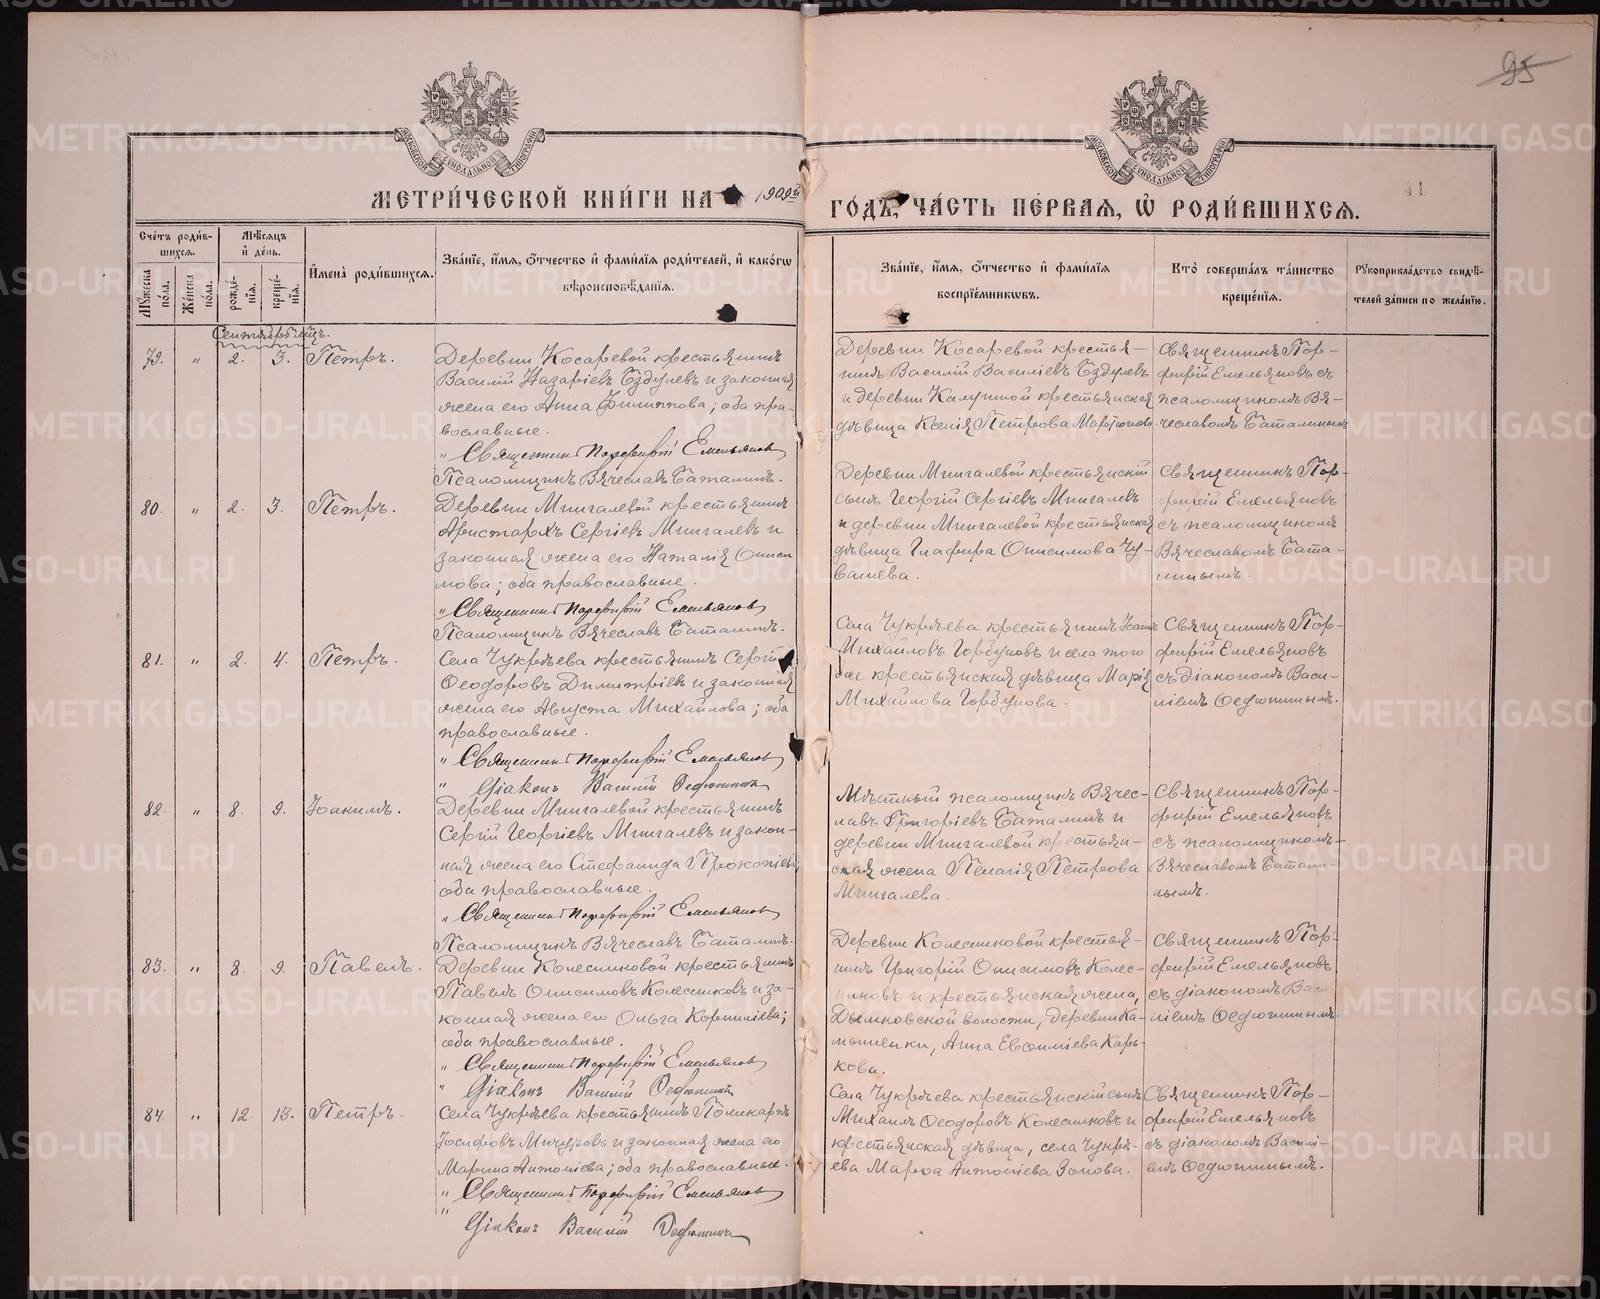 95
41
МОСКОВСКОЙ СѴНОДАЛЬНОЙ ТИПОГРАФІИ
МОСКОВСКОЙ СѴНОДАЛЬНОЙ ТИПОГРАФІИ
МЕТРИ́ЧЕСКОЙ КНИ́ГИ НА 1909й
ГОДЪ, ЧА́СТЬ ПЕ́РВАЯ, Ѡ РОДИ́ВШИХСЯ.
Сче́тъ роди́в-
шихся.
Му́жеска по́ла.
Же́нска по́ла.
Мѣ́сяцъ и де́нь.
рожде́-
нїя.
креще́-
нїя.
Имена̀ роди́вшихся.
Зва́нїе, и́мя, ѻ́тчество и фами́лїя роди́телей, и како́гѡ
вѣроисповѣ́данїя.
Зва́нїе, и́мя, ѻ́тчество и фами́лїя
воспрїе́мникѡвъ.
Кто̀ соверша́лъ та́инство
креще́нїя.
Рꙋкоприкла́дство свидѣ́-
телей за́писи по жела́нїю.
Сентябрь мѣц.
79. " 2. 3. Петръ.
Деревни Косаревой крестьянинъ
Василій Назаріевъ Бздулевъ и законная
жена его Анна Филиппова; оба пра-
вославные.
" Священникъ Порфирій Емельяновъ
Псаломщикъ Вячеславъ Баталинъ.
Деревни Косаревой крестья-
нинъ Василій Василіевъ Бздулевъ
и деревни Калушной крестьянская
дѣвица Ксенія Петрова Мартюшева.
Священникъ Пор-
фирій Емельяновъ съ
псаломщикомъ Вя-
чеславомъ Баталинымъ
80. " 2. 3. Петръ.
Деревни Мингалевой крестьянинъ
Аристархъ Сергіевъ Мингалевъ и
законная жена его Наталія Ониси-
мова; оба православные.
" Священникъ Порфирій Емельяновъ
Псаломщикъ Вячеславъ Баталинъ.
Деревни Мингалевой крестьянскій
сынъ Георгій Сергіевъ Мингалевъ
и деревни Мингалевой крестьянская
дѣвица Глафира Онисимова Чу-
вашева.
Священникъ Пор-
фирій Емельяновъ
съ псаломщикомъ
Вячеславомъ Бата-
линымъ.
81. " 2. 4. Петръ.
Села Чукрѣева крестьянинъ Сергій
Ѳеодоровъ Димитріевъ и законная
жена его Августа Михайлова; оба
православные.
" Священникъ Порфирій Емельяновъ
" Діаконъ Василій Федюшинъ
Села Чукрѣева крестьянинъ Іоаннъ
Михайловъ Горбуновъ и села того
же крестьянская дѣвица Марія
Михайлова Горбунова.
Священникъ Пор-
фирій Емельяновъ
съ діакономъ Васи-
ліемъ Федюшинымъ.
82. " 8. 9. Іоакимъ.
Деревни Мингалевой крестьянинъ
Сергій Георгіевъ Мингалевъ и закон-
ная жена его Стефанида Прокопіева;
оба православные.
" Священникъ Порфирій Емельяновъ
Псаломщикъ Вячеславъ Баталинъ.
Мѣстный псаломщикъ Вячес-
лавъ Григоріевъ Баталинъ и
деревни Мингалевой крестьян-
ская жена Пелагія Петрова
Мингалева.
Священникъ Пор-
фирій Емельяновъ
съ псаломщикомъ
Вячеславомъ Батали-
нымъ.
83. " 8. 9. Павелъ.
Деревни Колесниковой крестьянинъ
Павелъ Онисимовъ Колесниковъ и за-
конная жена его Ольга Корниліева;
оба православные.
" Священникъ Порфирій Емельяновъ
" Діаконъ Василій Федюшинъ
Деревни Колесниковой крестья-
нинъ Григорій Онисимовъ Колес-
никовъ и крестьянская жена,
Дымковской волости, деревни Ка-
мышенки, Анна Евфиміева Карь-
кова.
Священникъ Пор-
фирій Емельяновъ
съ діакономъ Васи-
ліемъ Федюшинымъ.
84. " 12. 13. Петръ.
Села Чукрѣева крестьянинъ Поликарпъ
Іосифовъ Мичуровъ и законная жена его
Марина Антоніева; оба православные.
" Священникъ Порфирій Емельяновъ
" Діаконъ Василій Федюшинъ
Села Чукрѣева крестьянскій сынъ
Михаилъ Ѳеодоровъ Колесниковъ и
крестьянская дѣвица, села Чукрѣ-
ева Марѳа Антоніева Зотова.
Священникъ Пор-
фирій Емельяновъ
съ діакономъ Василі-
емъ Федюшинымъ.
METRIKI.GASO-URAL.RU